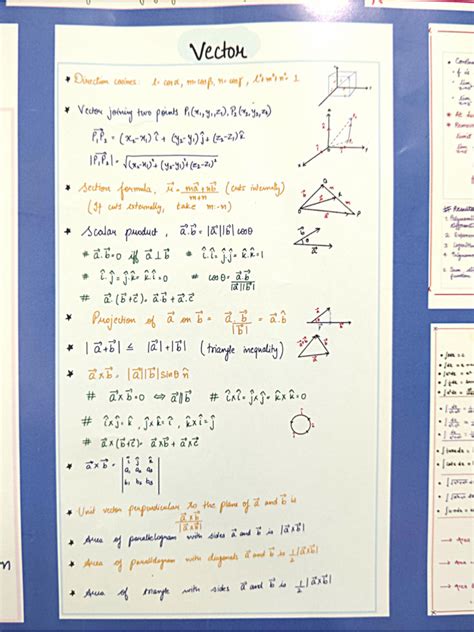 Vector
★ Direction cosines: l = cosα, m = cosβ, n = cosγ, l²+m²+n² = 1
★ Vector joining two points P₁(x₁,y₁,z₁), P₂(x₂,y₂,z₂)
P₁P₂ = (x₂-x₁) î + (y₂-y₁) ĵ + (z₂-z₁) k̂
|P₁P₂| = √(x₂-x₁)²+(y₂-y₁)²+(z₂-z₁)²
★ Section formula, r⃗ = (m a⃗ + n b⃗)/(m+n) (cuts internally)
(If cuts externally, take m:-n)
★ Scalar product, a⃗.b⃗ = |a⃗||b⃗| cosθ
# a⃗.b⃗ = 0 if a⃗ ⊥ b⃗ # î.î = ĵ.ĵ = k̂.k̂ = 1
# î.ĵ = ĵ.k̂ = k̂.î = 0 # cosθ = a⃗.b⃗/|a⃗||b⃗|
# a⃗.(b⃗+c⃗) = a⃗.b⃗ + a⃗.c⃗
★ Projection of a⃗ on b⃗ = a⃗.b⃗/|b⃗| = a⃗.b̂
★ |a⃗+b⃗| ≤ |a⃗|+|b⃗| (triangle inequality)
★ a⃗×b⃗ = |a⃗||b⃗| sinθ n̂
# a⃗×b⃗ = 0 ⇔ a⃗||b⃗ # î×î = ĵ×ĵ = k̂×k̂ = 0
# î×ĵ = k̂, ĵ×k̂ = î, k̂×î = ĵ
# a⃗×(b⃗+c⃗) = a⃗×b⃗ + a⃗×c⃗
★ a⃗×b⃗ = | î ĵ k̂ |
a₁ a₂ a₃
b₁ b₂ b₃
★ Unit vector perpendicular to the plane of a⃗ and b⃗ is
a⃗×b⃗/|a⃗×b⃗|
★ Area of parallelogram with sides a⃗ and b⃗ is |a⃗×b⃗|
★ Area of parallelogram with diagonals a⃗ and b⃗ is ½|a⃗×b⃗|
★ Area of triangle with sides a⃗ and b⃗ is ½|a⃗×b⃗|